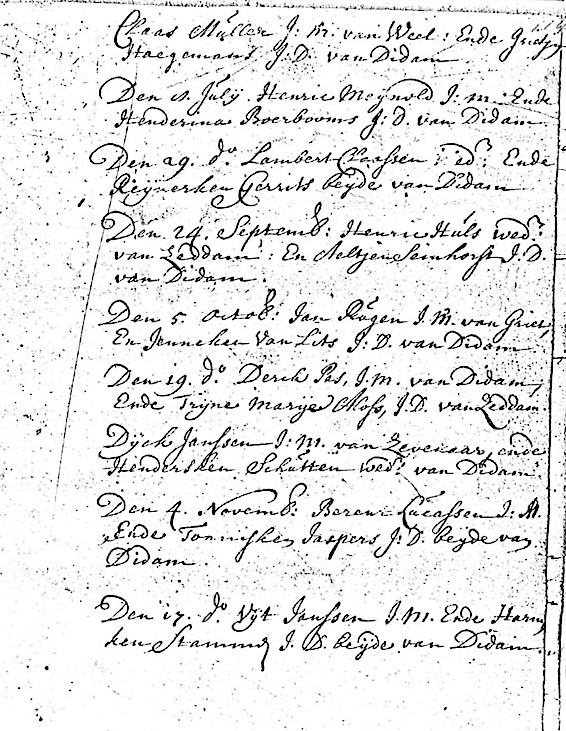 Claas Müller J: M. van Weel: Ende Grietjen
Haegemans J: D. van Didam
Den 11. Julÿ Henric Meÿnold J: m: Ende
Henderina Boerbooms J: D. van Didam.
Den 29. do. Lambert Claassen wedr: Ende
Reÿnerken Gerrits beÿde van Didam
Den 24. Septemb: Henric Hüls wedr:
van Zeddam: En Aeltjen Seinhorst J. D.
van Didam.
Den 5. Octob: Jan Rügen J. M. van Griet,
En Jenneken van Lits J: D. van Didam
Den 19. do. Derck Pas, J. m. van Didam,
Ende Trÿne Marÿe Closs, J. D. van Zeddam.
Dÿck Janssen J: M. van Zevenaar, ende
Hendersken Schütten wed: van Didam
Den 4. Novemb: Berent Lücassen J: M.
Ende Tonnisken Jaspers J: D. beÿde van
Didam.
Den 17. do. Vÿt Janssen J. M. Ende Harm
ken Stamms J. D. beÿde van Didam.